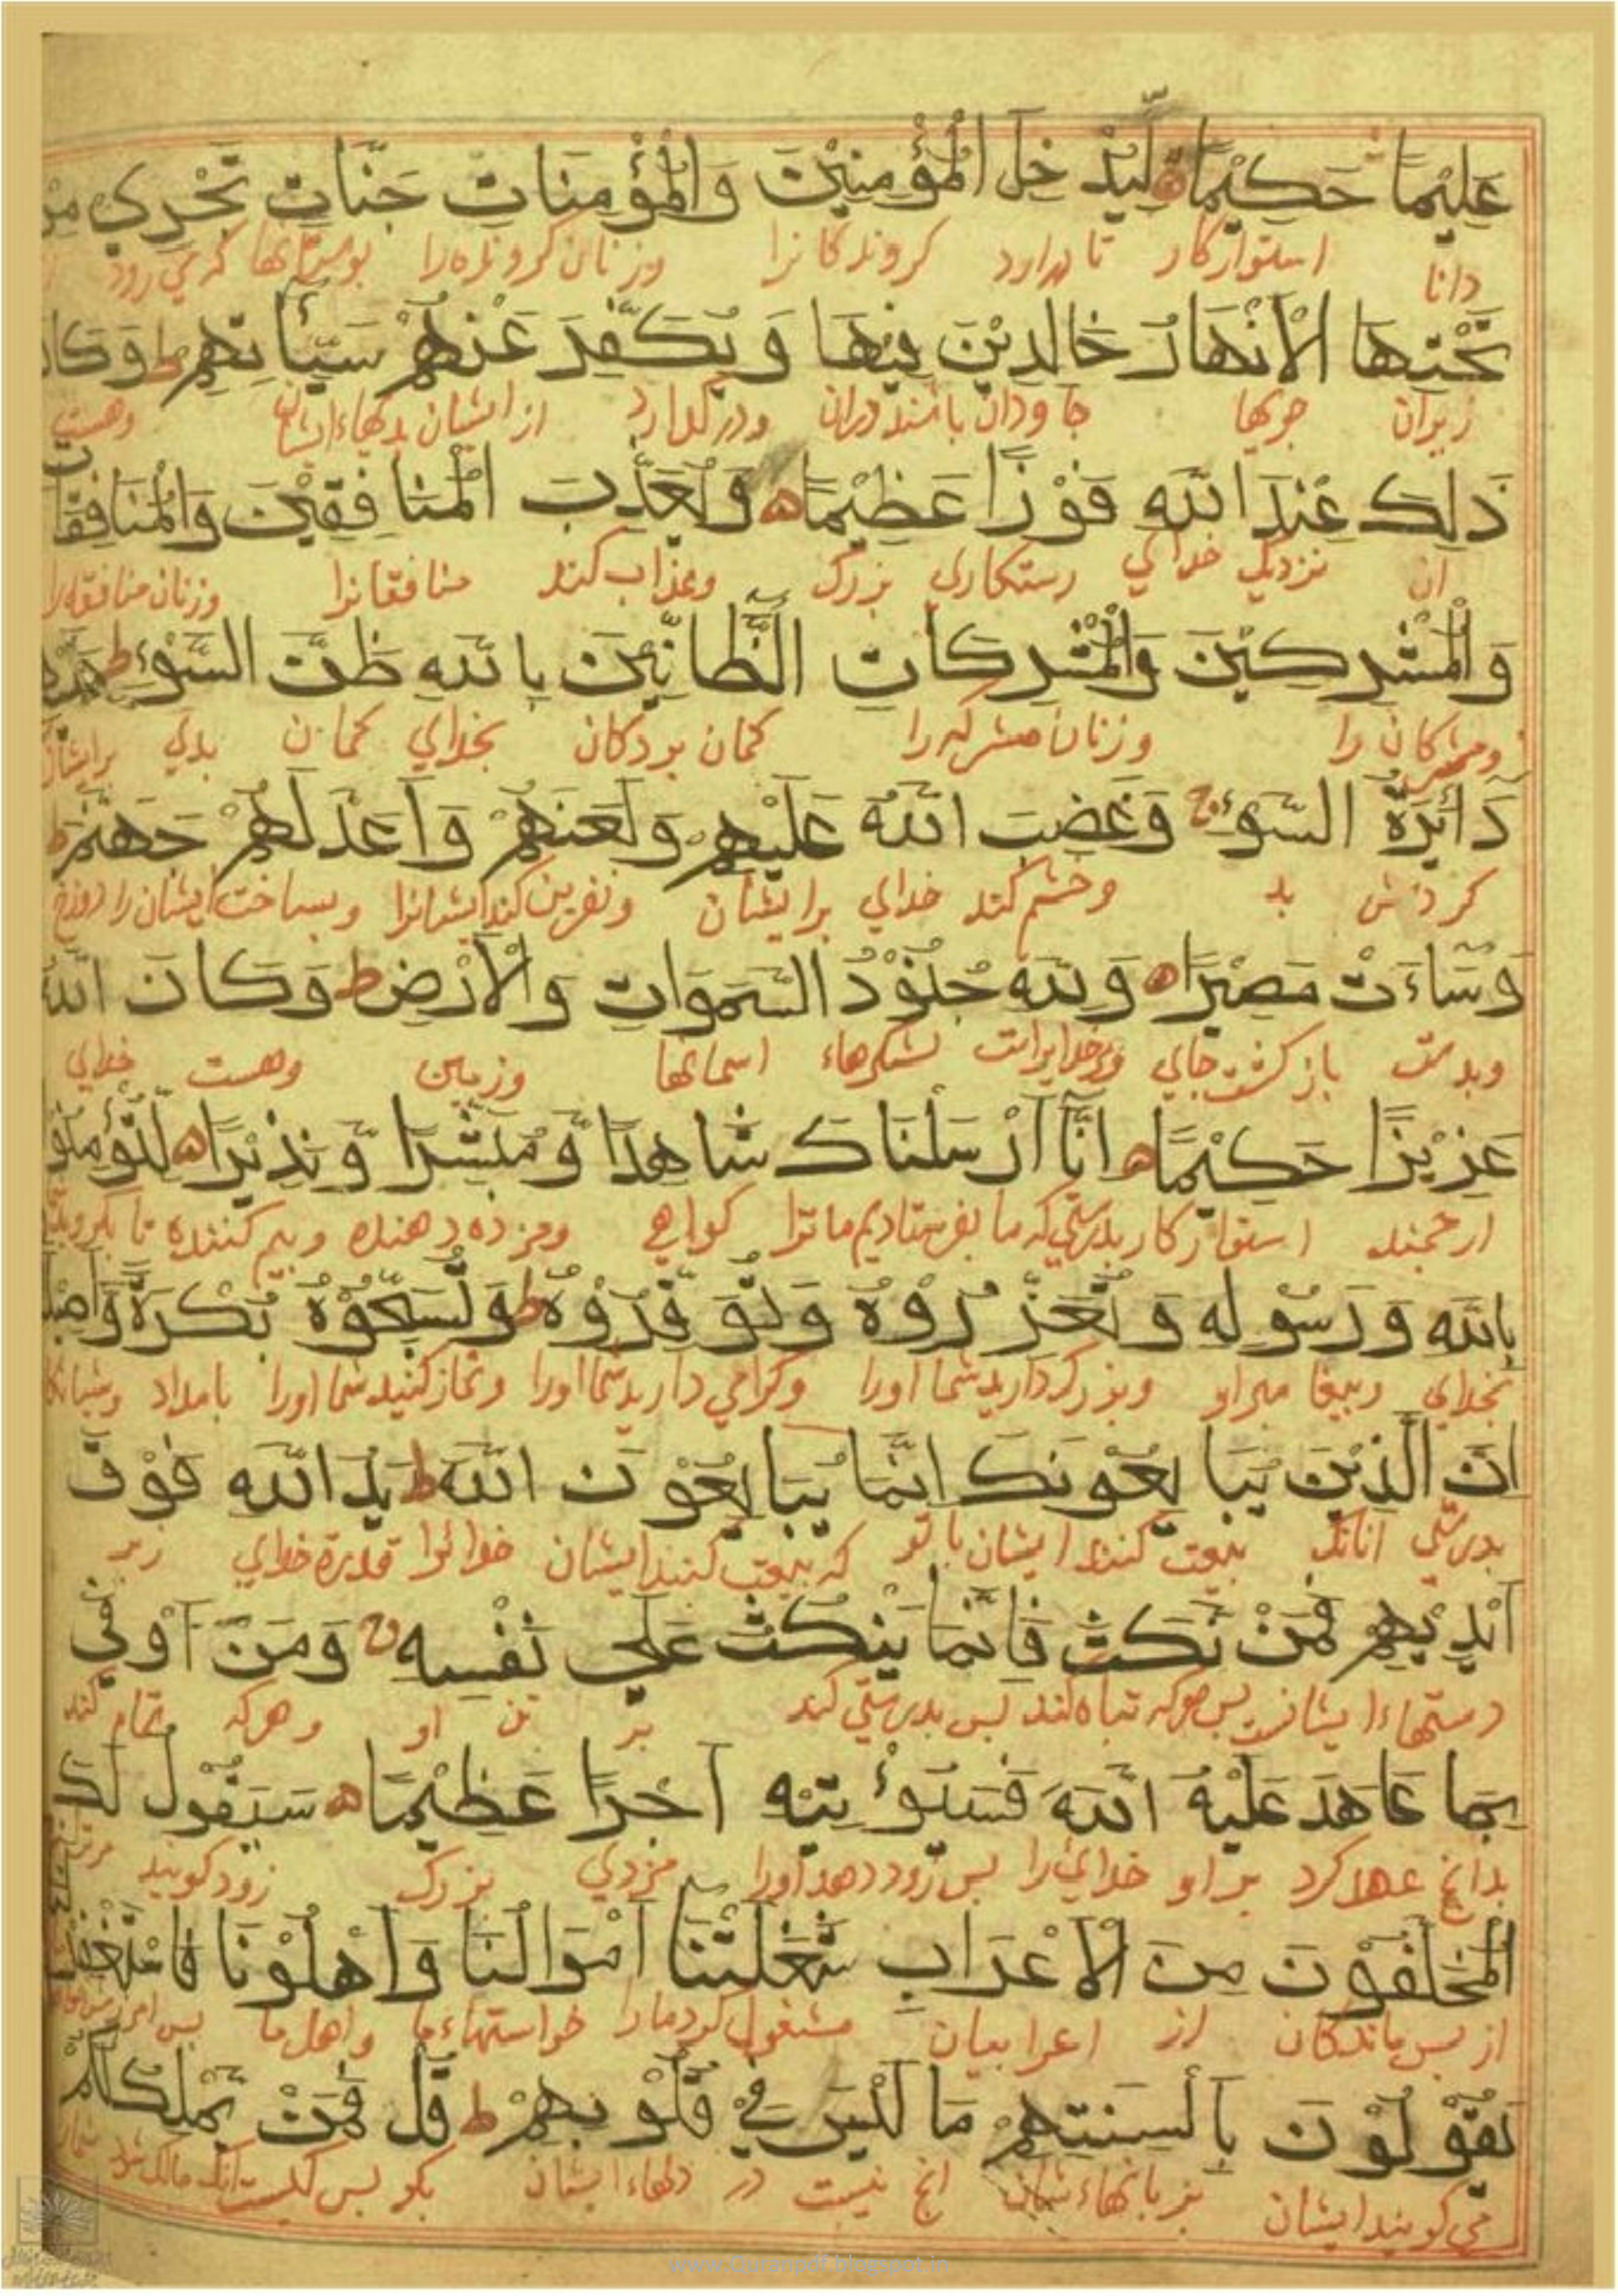 عَلِيْمًا حَكِيْمًا ه لِّيُدْخِلَ الْمُؤْمِنِيْنَ وَالْمُؤْمِنَاتِ جَنَّاتٍ تَجْرِي مِنْ
دانا استوارکار تا درارد کروندکانرا وزنان کرونده را بوستانها که می رود
تَحْتِهَا الْاَنْهَارُ خَالِدِيْنَ فِيْهَا وَيُكَفِّرَ عَنْهُمْ سَيِّأٰتِهِمْ ط وَكَانَ
زیران جویها جاودان باشند دران ودرکذارد از ایشان بدیهاء ایشان وهست
ذٰلِكَ عِنْدَ اللّٰهِ فَوْزًا عَظِيْمًا ه وَيُعَذِّبَ الْمُنَافِقِيْنَ وَالْمُنَافِقَاتِ
ان نزدیک خدای رستکاری بزرک وعذاب کند منافقانرا وزنان منافقه را
وَالْمُشْرِكِيْنَ وَالْمُشْرِكَاتِ الظَّانِّيْنَ بِاللّٰهِ ظَنَّ السَّوْءِ ط عَلَيْهِمْ
ومشرکان را وزنان مشرکه را کمان بردکان بخدای کمان بدی برایشان
دَائِرَةُ السَّوْءِ ج وَغَضِبَ اللّٰهُ عَلَيْهِمْ وَلَعَنَهُمْ وَاَعَدَّ لَهُمْ جَهَنَّمَ ط
کردش بد وخشم کند خدای برایشان ونفرین کند ایشانرا وبساخت ایشان را دوزخ
وَسَاءَتْ مَصِيْرًا ه وَلِلّٰهِ جُنُوْدُ السَّمٰوَاتِ وَالْاَرْضِ ط وَكَانَ اللّٰهُ
وبدست بازکشت جای ومرخدایراست لشکرهاء اسمانها وزمین وهست خدای
عَزِيْزًا حَكِيْمًا ه اِنَّا اَرْسَلْنَاكَ شَاهِدًا وَّمُبَشِّرًا وَّنَذِيْرًا ه لِّتُؤْمِنُوْا
ارجمند استوارکار بدرستی که ما بفرستادیم ما ترا کواهی ومزده دهنده وبیم کننده تا بکروید
بِاللّٰهِ وَرَسُوْلِهِ وَتُعَزِّرُوْهُ وَتُوَقِّرُوْهُ ط وَتُسَبِّحُوْهُ بُكْرَةً وَّاَصِيْلًا
بخدای وبیغامبر او وبزرک دارید شما اورا وکرامی دارید شما اورا ونماز کنید شما اورا بامداد وشبانکاه
اِنَّ الَّذِيْنَ يُبَايِعُوْنَكَ اِنَّمَا يُبَايِعُوْنَ اللّٰهَ ط يَدُ اللّٰهِ فَوْقَ
بدرستی انانک بیعت کنند ایشان با تو که بیعت کنند ایشان خدائرا قدرة خدای زبر
اَيْدِيْهِمْ فَمَنْ نَّكَثَ فَاِنَّمَا يَنْكُثُ عَلٰي نَفْسِهِ ج وَمَنْ اَوْفٰي
دستهاء ایشانست بس هرکه تباه کند بس بدرستی کند بر تن او وهرکه تمام کند
بِمَا عَاهَدَ عَلَيْهُ اللّٰهَ فَسَيُؤْتِيْهِ اَجْرًا عَظِيْمًا ه سَيَقُوْلُ لَكَ
بدانج عهد کرد بر او خدائیرا بس زود دهد اورا مزدی بزرک زود کویند مرترا
الْمُخَلَّفُوْنَ مِنَ الْاَعْرَابِ شَغَلَتْنَا اَمْوَالُنَا وَاَهْلُوْنَا فَاسْتَغْفِرْ لَنَا
از بس ماندکان از اعرابیان مشغول کرد ما را خواستهاء ما واهل ما بس
يَقُوْلُوْنَ بِاَلْسِنَتِهِمْ مَا لَيْسَ فِيْ قُلُوْبِهِمْ ط قُلْ فَمَنْ يَمْلِكُ لَكُمْ
می کویند ایشان بزبانهاء شان انج نیست در دلهاء ایشان بکو بس کیست انک مالک شود
www.Quranpdf.blogspot.in